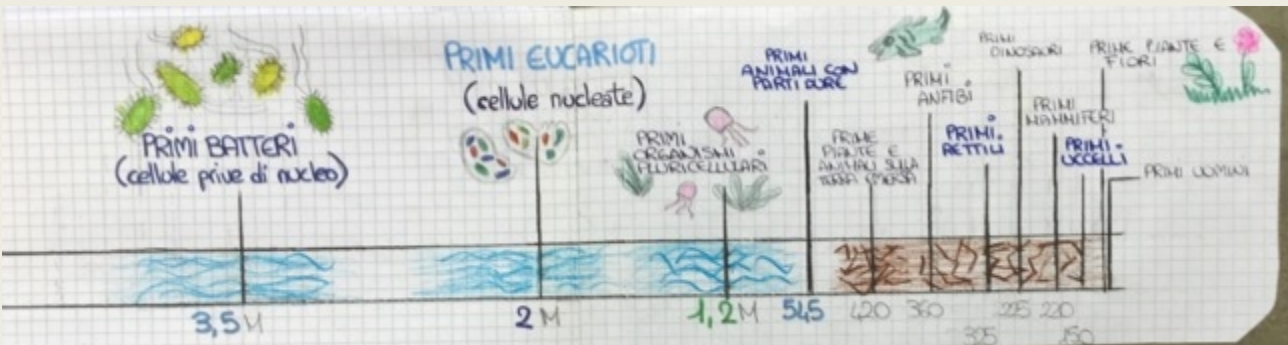 PRIMI BATTERI
(cellule prive di nucleo)
PRIMI EUCARIOTI
(cellule nucleate)
PRIMI
ORGANISMI
PLURICELLULARI
PRIMI
ANIMALI CON
PARTI DURE
PRIME
PIANTE E
ANIMALI SULLA
TERRA EMERSA
PRIMI
ANFIBI
PRIMI
RETTILI
PRIMI
DINOSAURI
PRIMI
MAMMIFERI
PRIMI
UCCELLI
PRIME PIANTE E
FIORI
PRIMI UOMINI
3,5 M
2 M
1,2 M
545
420
360
225
220
150